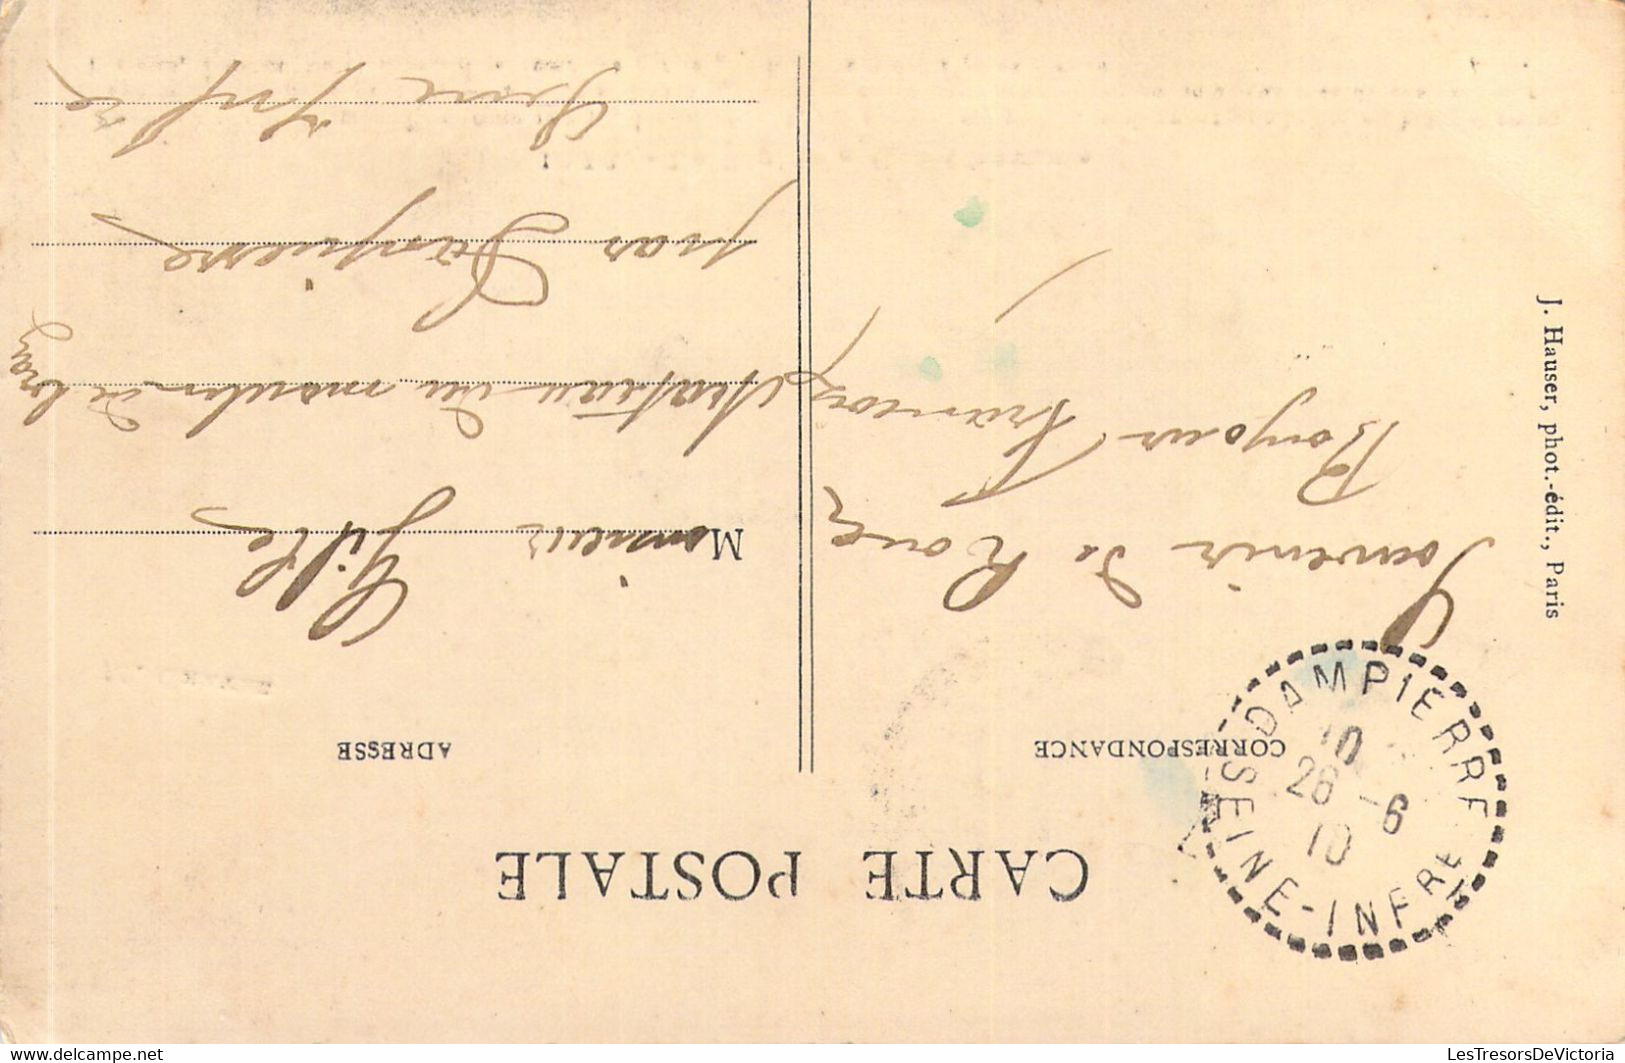 CARTE POSTALE
CORRESPONDANCE
ADRESSE
Souvenir de
Bonjour François
Monsieur
du moulin de
par Dampierre
Seine Infre
DAMPIERRE
10
28 -6
10
SEINE-INFRE
J. Hauser, phot.-édit., Paris
LesTresorsDeVictoria
www.delcampe.net